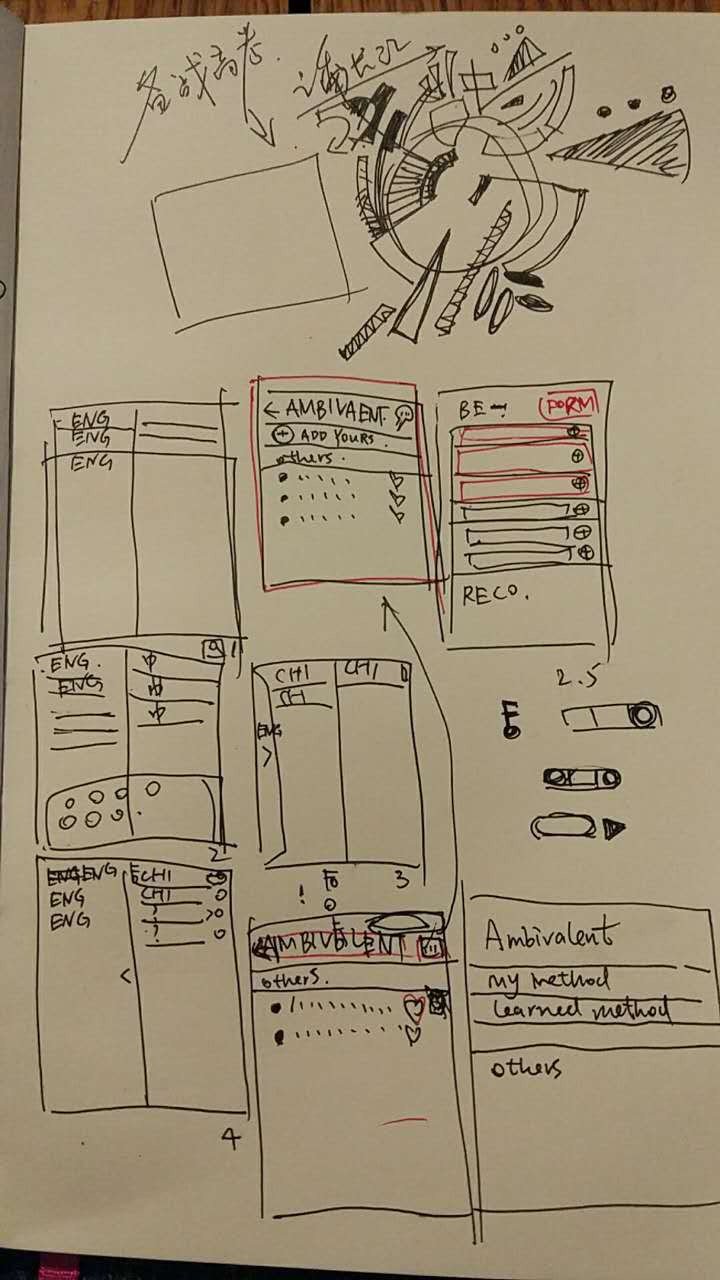 备战高考.
ENG
ENG
ENG
1
← AMBIVAENT.
+ ADD YOURS.
others.
BE- FORM
RECO.
2.5
ENG.
ENG
中
中
中
2
CHI
CHI
CH
ENG
>
3
ENG ENG
ENG
ENG
CHI
CHI
?
?
<
4
!
AMBIVALENT
others.
Ambivalent
my method
learned method
others